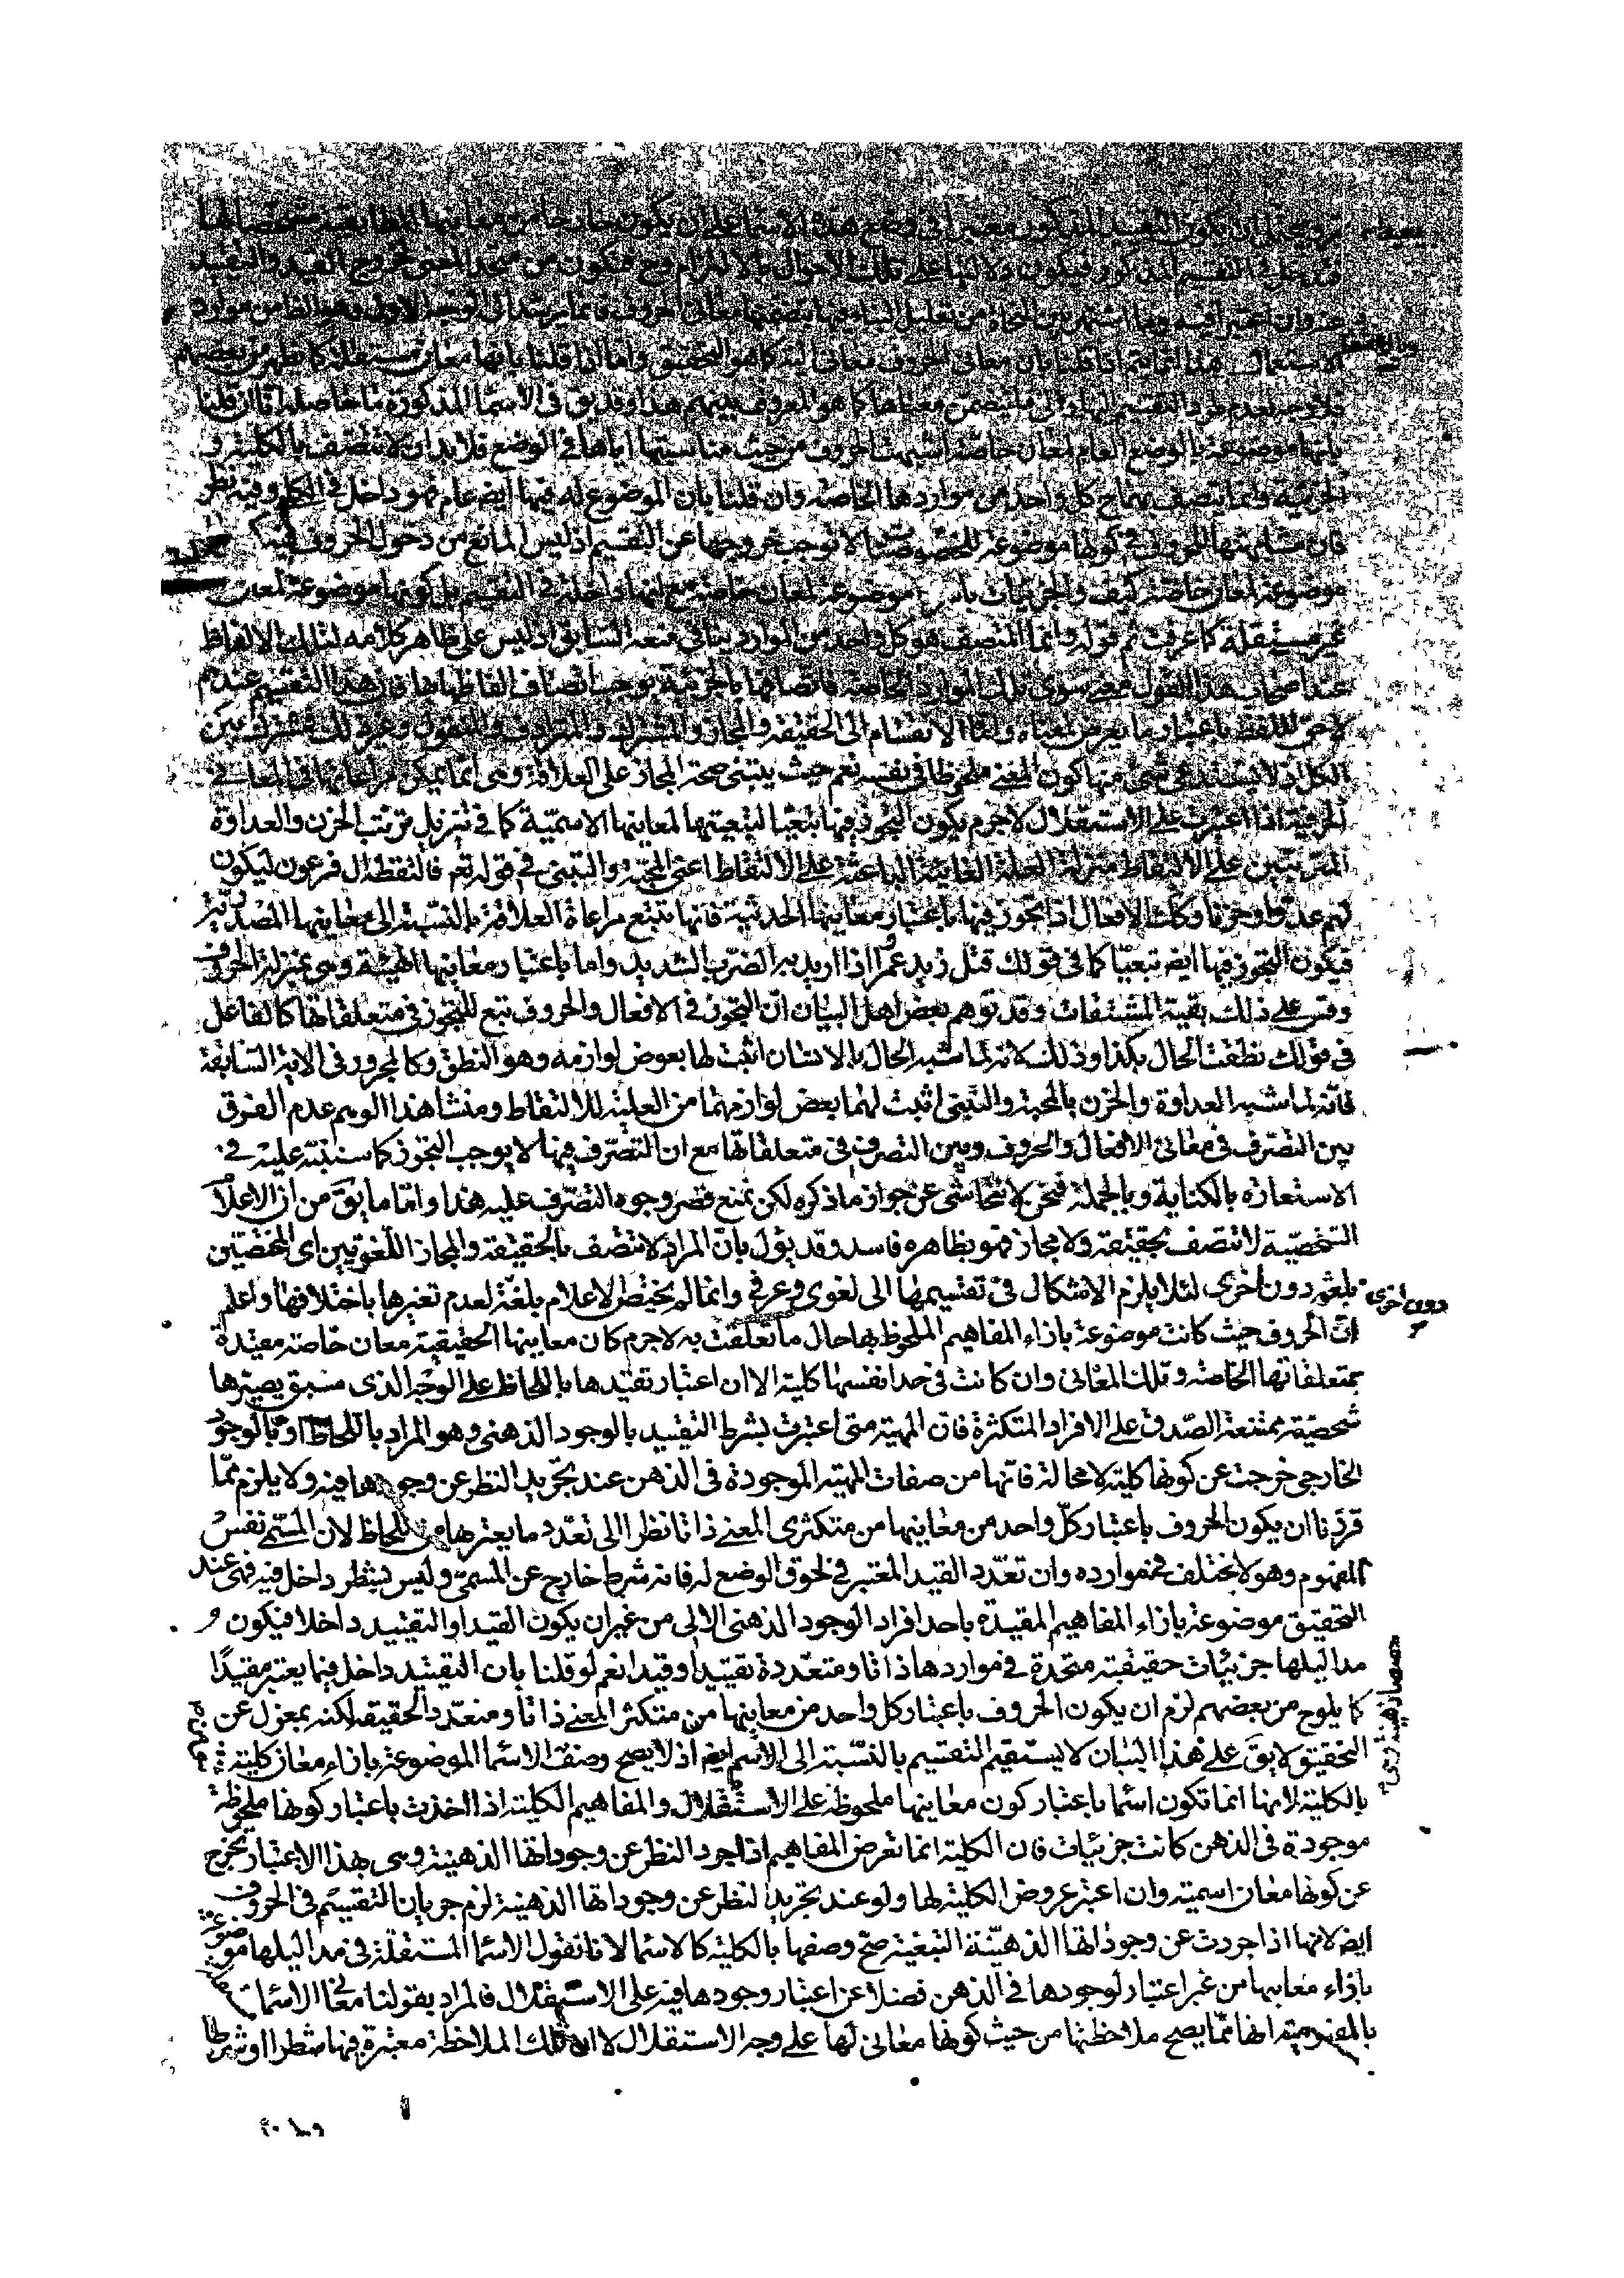 الاستعمال هذا انما يتم اذا قلنا بان معانى الحروف معانى الية كما هو التحقيق واما اذا قلنا بانها معان مستقلة كما يظهر من بعضهم
فلا وجه لعدم طرد التقسيم اليها كما هو المعروف بينهم هذا وقد يق فى الاسماء المذكورة ما حاصله انا ان قلنا
بانها موضوعة بالوضع العام لمعان خاصة اشبهت الحروف من حيث مناسبتها اياها فى الوضع فلا بد ان لا تتصف بالكلية و
الجزئية وانما يتصف بهما ح كل واحد من مواردها الخاصة وان قلنا بان الموضوع له فيها ايضا عام فهو داخل فى الكلى وفيه نظر
فان مشابهتها للحروف فى كونها موضوعة للخصوصيات لا توجب خروجها عن التقسيم اذ ليس المانع من دخول الحروف فيه
موضوعة لمعان خاصة كيف والجزئيات باسرها موضوعة لمعان خاصة مع انها داخلة فى التقسيم بل كونها موضوعة لمعان
غير مستقلة كما عرفت ثم قوله وانما المتصف هو كل واحد من الموارد ينافى منعه السابق اذ ليس على ظاهر كلامه لتلك الالفاظ
عند اصحاب هذا القول معنى سوى تلك الموارد الخاصة فاتصافها بالجزئية توجب اتصاف الفاظها بها فان هذا التقسيم عندهم
لاحق للفظ باعتبار ما يعرض لمعناه واما الانقسام الى الحقيقة والمجاز والمشترك والمترادف والمنقول وغير ذلك فمشترك بين
الكل اذ لا يستدعى شئ منها كون المعنى ملحوظا فى نفسه نعم حيث يبتنى صحة المجاز على العلاقة وهى انما يمكن مراعاتها فى المعانى
الحرفية اذا اعتبرت على الاستقلال لا جرم يكون التجوز فيها تبعيا لتبعيتها لمعانيها الاسمية كما فى تنزيل ترتب الحزن والعداوة
المترتبين على الالتقاط منزلة العلة الغائية الباعثة على الالتقاط اعنى المحبة والتبنى فى قوله تعم فالتقطه ال فرعون ليكون
لهم عدوا وحزنا وكذلك الافعال اذا تجوز فيها باعتبار معانيها الحدثية فانها تتبع مراعاة العلاقة بالنسبة الى معانيها المصدرية
فيكون التجوز فيها ايضا تبعيا كما فى قولك قتل زيد عمرا اذا اريد به الضرب الشديد واما باعتبار معانيها الهيئية وهى بمنزلة الحروف
وقس على ذلك بقية المشتقات وقد توهم بعض اهل البيان ان التجوز فى الافعال والحروف تبع للتجوز فى متعلقاتها كالفاعل
فى قولك نطقت الحال بكذا وذلك لانه لما شبه الحال بالانسان اثبت لها بعض لوازمه وهو النطق وكالمجرور فى الاية السابقة
فانه لما شبه العداوة والحزن بالمحبة والتبنى اثبت لهما بعض لوازمهما من العلية للالتقاط ومنشا هذا الوهم عدم الفرق
بين التصرف فى معانى الافعال والحروف وبين التصرف فى متعلقاتها مع ان التصرف فيها لا يوجب التجوز كما سننبه عليه فى
الاستعارة بالكناية وبالجملة فنحن لا نتحاشى عن جواز ما ذكره لكن نمنع قصر وجوه التصرف عليه هذا واما ما يق من ان الاعلام
الشخصية لا تتصف بحقيقة ولا مجاز فهو بظاهره فاسد وقد يؤل بان المراد لا تتصف بالحقيقة والمجاز اللغويين اى المختصين
بلغة دون اخرى لئلا يلزم الاشكال فى تقسيمهما الى لغوى وعرفى وانما لم يختص الاعلام بلغة لعدم تغيرها باختلافها واعلم
دون اخرى
ان الحروف حيث كانت موضوعة بازاء المفاهيم الملحوظ بها حال ما تعلقت به لا جرم كان معانيها الحقيقية معان خاصة مقيدة
بمتعلقاتها الخاصة وتلك المعانى وان كانت فى حد انفسها كلية الا ان اعتبار تقيدها باللحاظ على الوجه الذى سبق يصيرها
شخصية ممتنعة الصدق على الافراد المتكثرة فان المهية متى اعتبرت بشرط التقييد بالوجود الذهنى وهو المراد باللحاظ او بالوجود
الخارجى خرجت عن كونها كلية لا محالة فانها من صفات المهية الموجودة فى الذهن عند تجريد النظر عن وجودها فيه ولا يلزم مما
قررنا ان يكون الحروف باعتبار كل واحد من معانيها من متكثرى المعنى ذاتا نظرا الى تعدد ما يعتبرها من اللحاظ لان المسمى نفس
المفهوم وهو لا يختلف فى موارده وان تعدد القيد المعتبر فى لحوق الوضع له فانه شرط خارج عن المسمى وليس بشطر داخل فيه فهى عند
التحقيق موضوعة بازاء المفاهيم المقيدة باحد افراد الوجود الذهنى الالى من غير ان يكون القيد او التقييد داخلا فيكون
مداليلها جزئيات حقيقية متحدة فى مواردها ذاتا ومتعددة تقييدا وقيدا نعم لو قلنا بان التقييد داخل فيما يعتبر مقيدا
كما يلوح من بعضهم لزم ان يكون الحروف باعتبار كل واحد من معانيها من متكثر المعنى ذاتا ومتعدد الحقيقة لكنه بمعزل عن
التحقيق لا يق على هذا البيان لا يستقيم التقسيم بالنسبة الى الاسم ايضا اذ لا يصح وصف الاسماء الموضوعة بازاء معان كلية
بالكلية لانها انما تكون اسما باعتبار كون معانيها ملحوظة على الاستقلال والمفاهيم الكلية اذا اخذت باعتبار كونها ملحوظة
موجودة فى الذهن كانت جزئيات فان الكلية انما تعرض المفاهيم اذا جرد النظر عن وجوداتها الذهنية وهى بهذا الاعتبار تخرج
عن كونها معان اسمية وان اعتبر عروض الكلية لها ولو عند تجريد النظر عن وجوداتها الذهنية لزم جريان التقسيم فى الحروف
ايضا لانها اذا جردت عن وجوداتها الذهنية التبعية صح وصفها بالكلية كالاسماء لانا نقول الاسماء المستقلة فى مداليلها موضوعة
بازاء معانيها من غير اعتبار لوجودها فى الذهن فضلا عن اعتبار وجودها فيه على الاستقلال فالمراد بقولنا معانى الاسماء
بالمفهومية انها مما يصح ملاحظتها من حيث كونها معانى لها على وجه الاستقلال لا ان تلك الملاحظة معتبرة فيها شطرا او شرطا